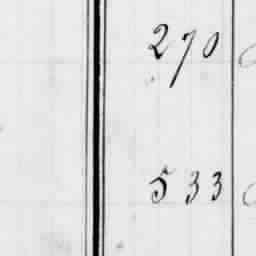 270
533